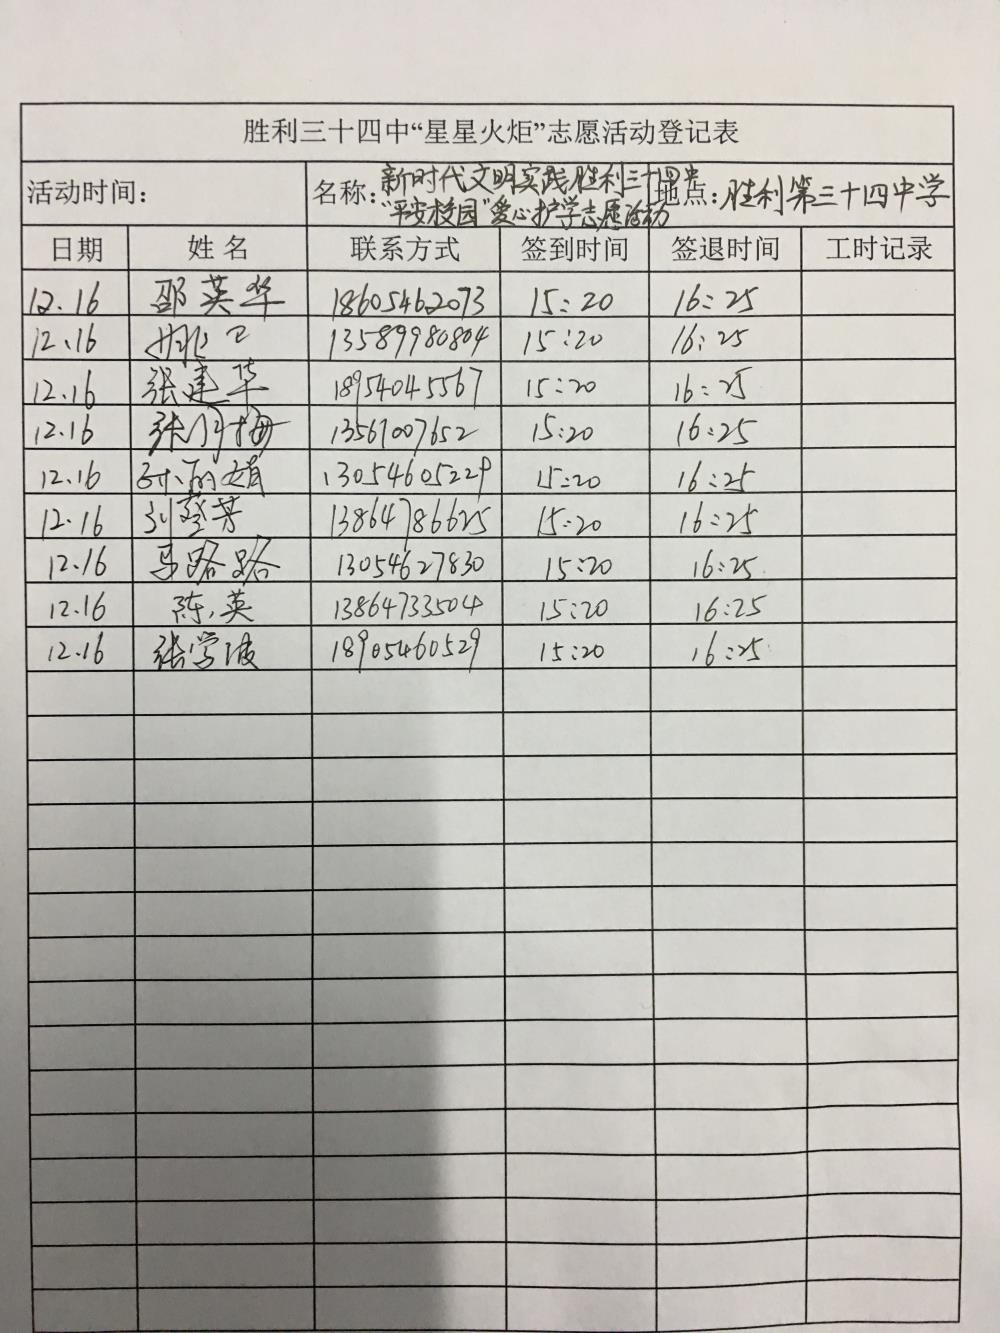 胜利三十四中“星星火炬”志愿活动登记表
活动时间： 名称：新时代文明实践胜利三十四中 地点：胜利第三十四中学
“平安校园”爱心护学志愿活动
日期 姓名 联系方式 签到时间 签退时间 工时记录
12.16 邵英华 18605462073 15:20 16:25
12.16 姚卫 13589980804 15:20 16:25
12.16 张建华 18954045567 15:20 16:25
12.16 张月梅 13561007652 15:20 16:25
12.16 孙丽娟 13054605229 15:20 16:25
12.16 刘芳 13864786625 15:20 16:25
12.16 马路路 13054627830 15:20 16:25
12.16 陈英 13864733504 15:20 16:25
12.16 张学波 18905460529 15:20 16:25